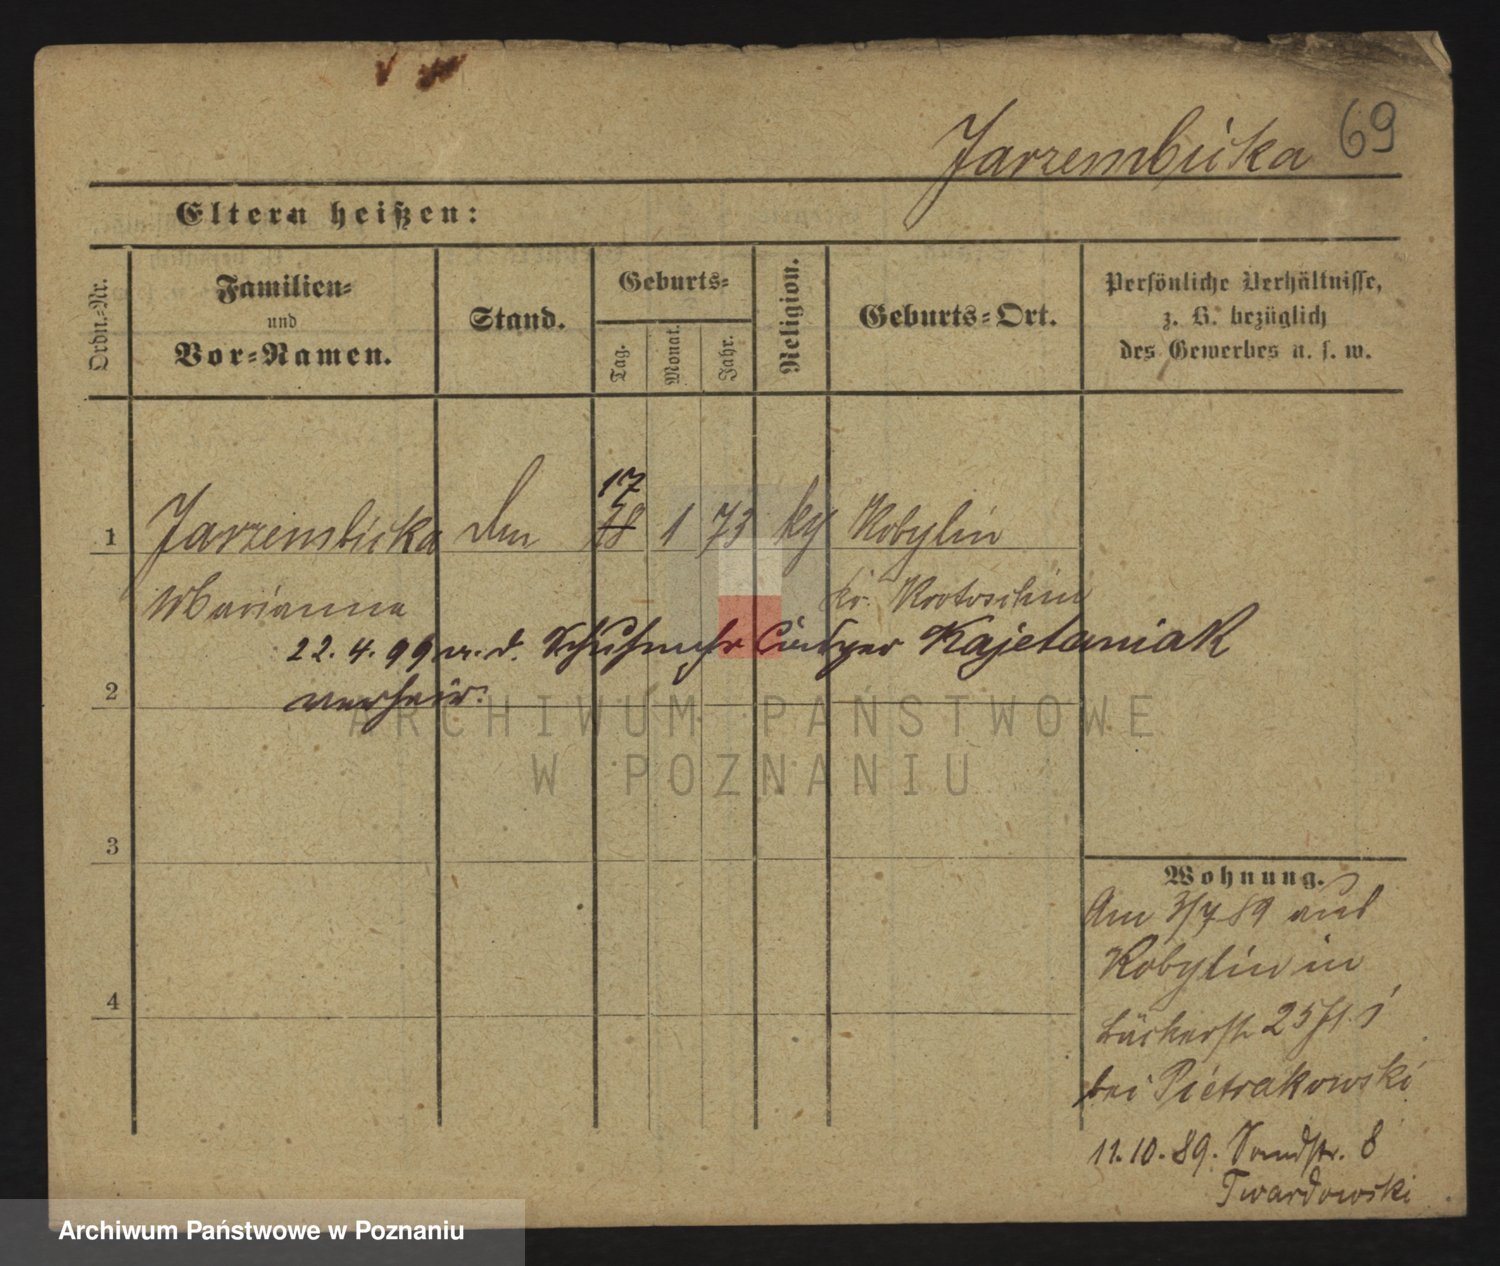 69
Jarzembicka
Eltern heißen:
Ordn.-Nr.
Familien-
und
Vor-Namen.
Stand.
Geburts-
Tag.
Monat.
Jahr.
Religion.
Geburts-Ort.
Persönliche Verhältnisse,
z. B. bezüglich
des Gewerbes u. s. w.
17
1 Jarzembicka 18 1 73 Kobylin
Marianna Kr. Krotoschin
22. 4. 99 m. d. Kajetaniak
verheir.
2
3
4
Wohnung.
Am 3/7 89 aus
Kobylin in
Bäckerstr 25
bei Pietrakowski
11. 10. 89. Sandstr. 8
Twardowski
ARCHIWUM PAŃSTWOWE
W POZNANIU
Archiwum Państwowe w Poznaniu